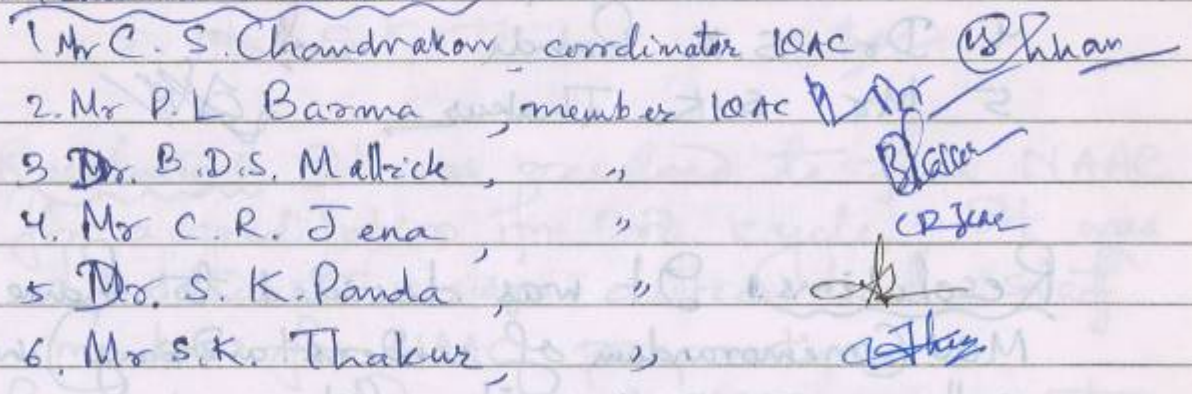 1 Mr C. S. Chandrakar, coordinator IQAC
2. Mr P. L Barma, member IQAC
3 Dr. B.D.S. Mallick, "
4. Mr C. R. Jena, " CR Jena
5 Dr. S. K. Panda, "
6. Mr S.K. Thakur, "